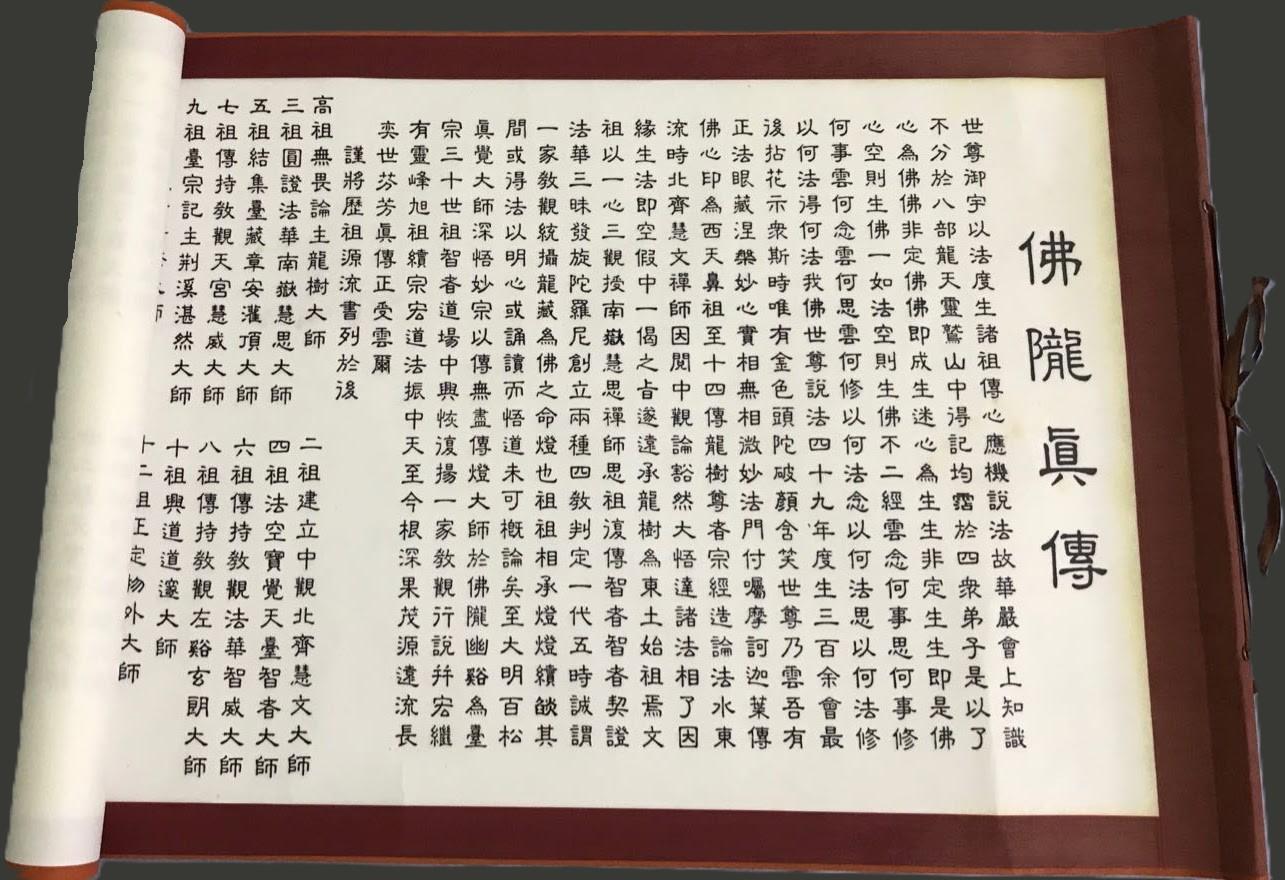 佛隴眞傳
世尊御宇以法度生諸祖傳心應機說法故華嚴會上知識
不分於八部龍天靈鷲山中得記均霑於四衆弟子是以了
心為佛佛非定佛佛即成生迷心為生生非定生生即是佛
心空則生佛一如法空則生佛不二經雲念何事思何事修
何事雲何念雲何思雲何修以何法念以何法思以何法修
以何法得何法我佛世尊説法四十九年度生三百余會最
後拈花示衆斯時唯有金色頭陀破顏含笑世尊乃雲吾有
正法眼藏涅槃妙心實相無相微妙法門付囑摩訶迦葉傳
佛心印為西天鼻祖至十四傳龍樹尊者宗經造論法水東
流時北齊慧文禪師因閲中觀論豁然大悟達諸法相了因
緣生法即空假中一偈之旨遂遠承龍樹為東土始祖焉文
祖以一心三觀授南嶽慧思禪師思祖復傳智者智者契證
法華三昧發旋陀羅尼創立兩種四教判定一代五時誠謂
一家教觀統攝龍藏為佛之命燈也祖祖相承燈燈續燄其
間或得法以明心或誦讀而悟道未可概論矣至大明百松
眞覺大師深悟妙宗以傳無盡傳燈大師於佛隴幽谿為臺
宗三十世祖智者道場中興恢復揚一家教觀行説并宏繼
有靈峰旭祖續宗宏道法振中天至今根深果茂源遠流長
奕世芬芳眞傳正受雲爾
謹將歷祖源流書列於後
高祖無畏論主龍樹大師
二祖建立中觀北齊慧文大師
三祖圓證法華南嶽慧思大師
四祖法空寶覺天臺智者大師
五祖結集臺藏章安灌頂大師
六祖傳持教觀法華智威大師
七祖傳持教觀天宮慧威大師
八祖傳持教觀左谿玄朗大師
九祖臺宗記主荆溪湛然大師
十祖興道道邃大師
師
十二祖正定物外大師